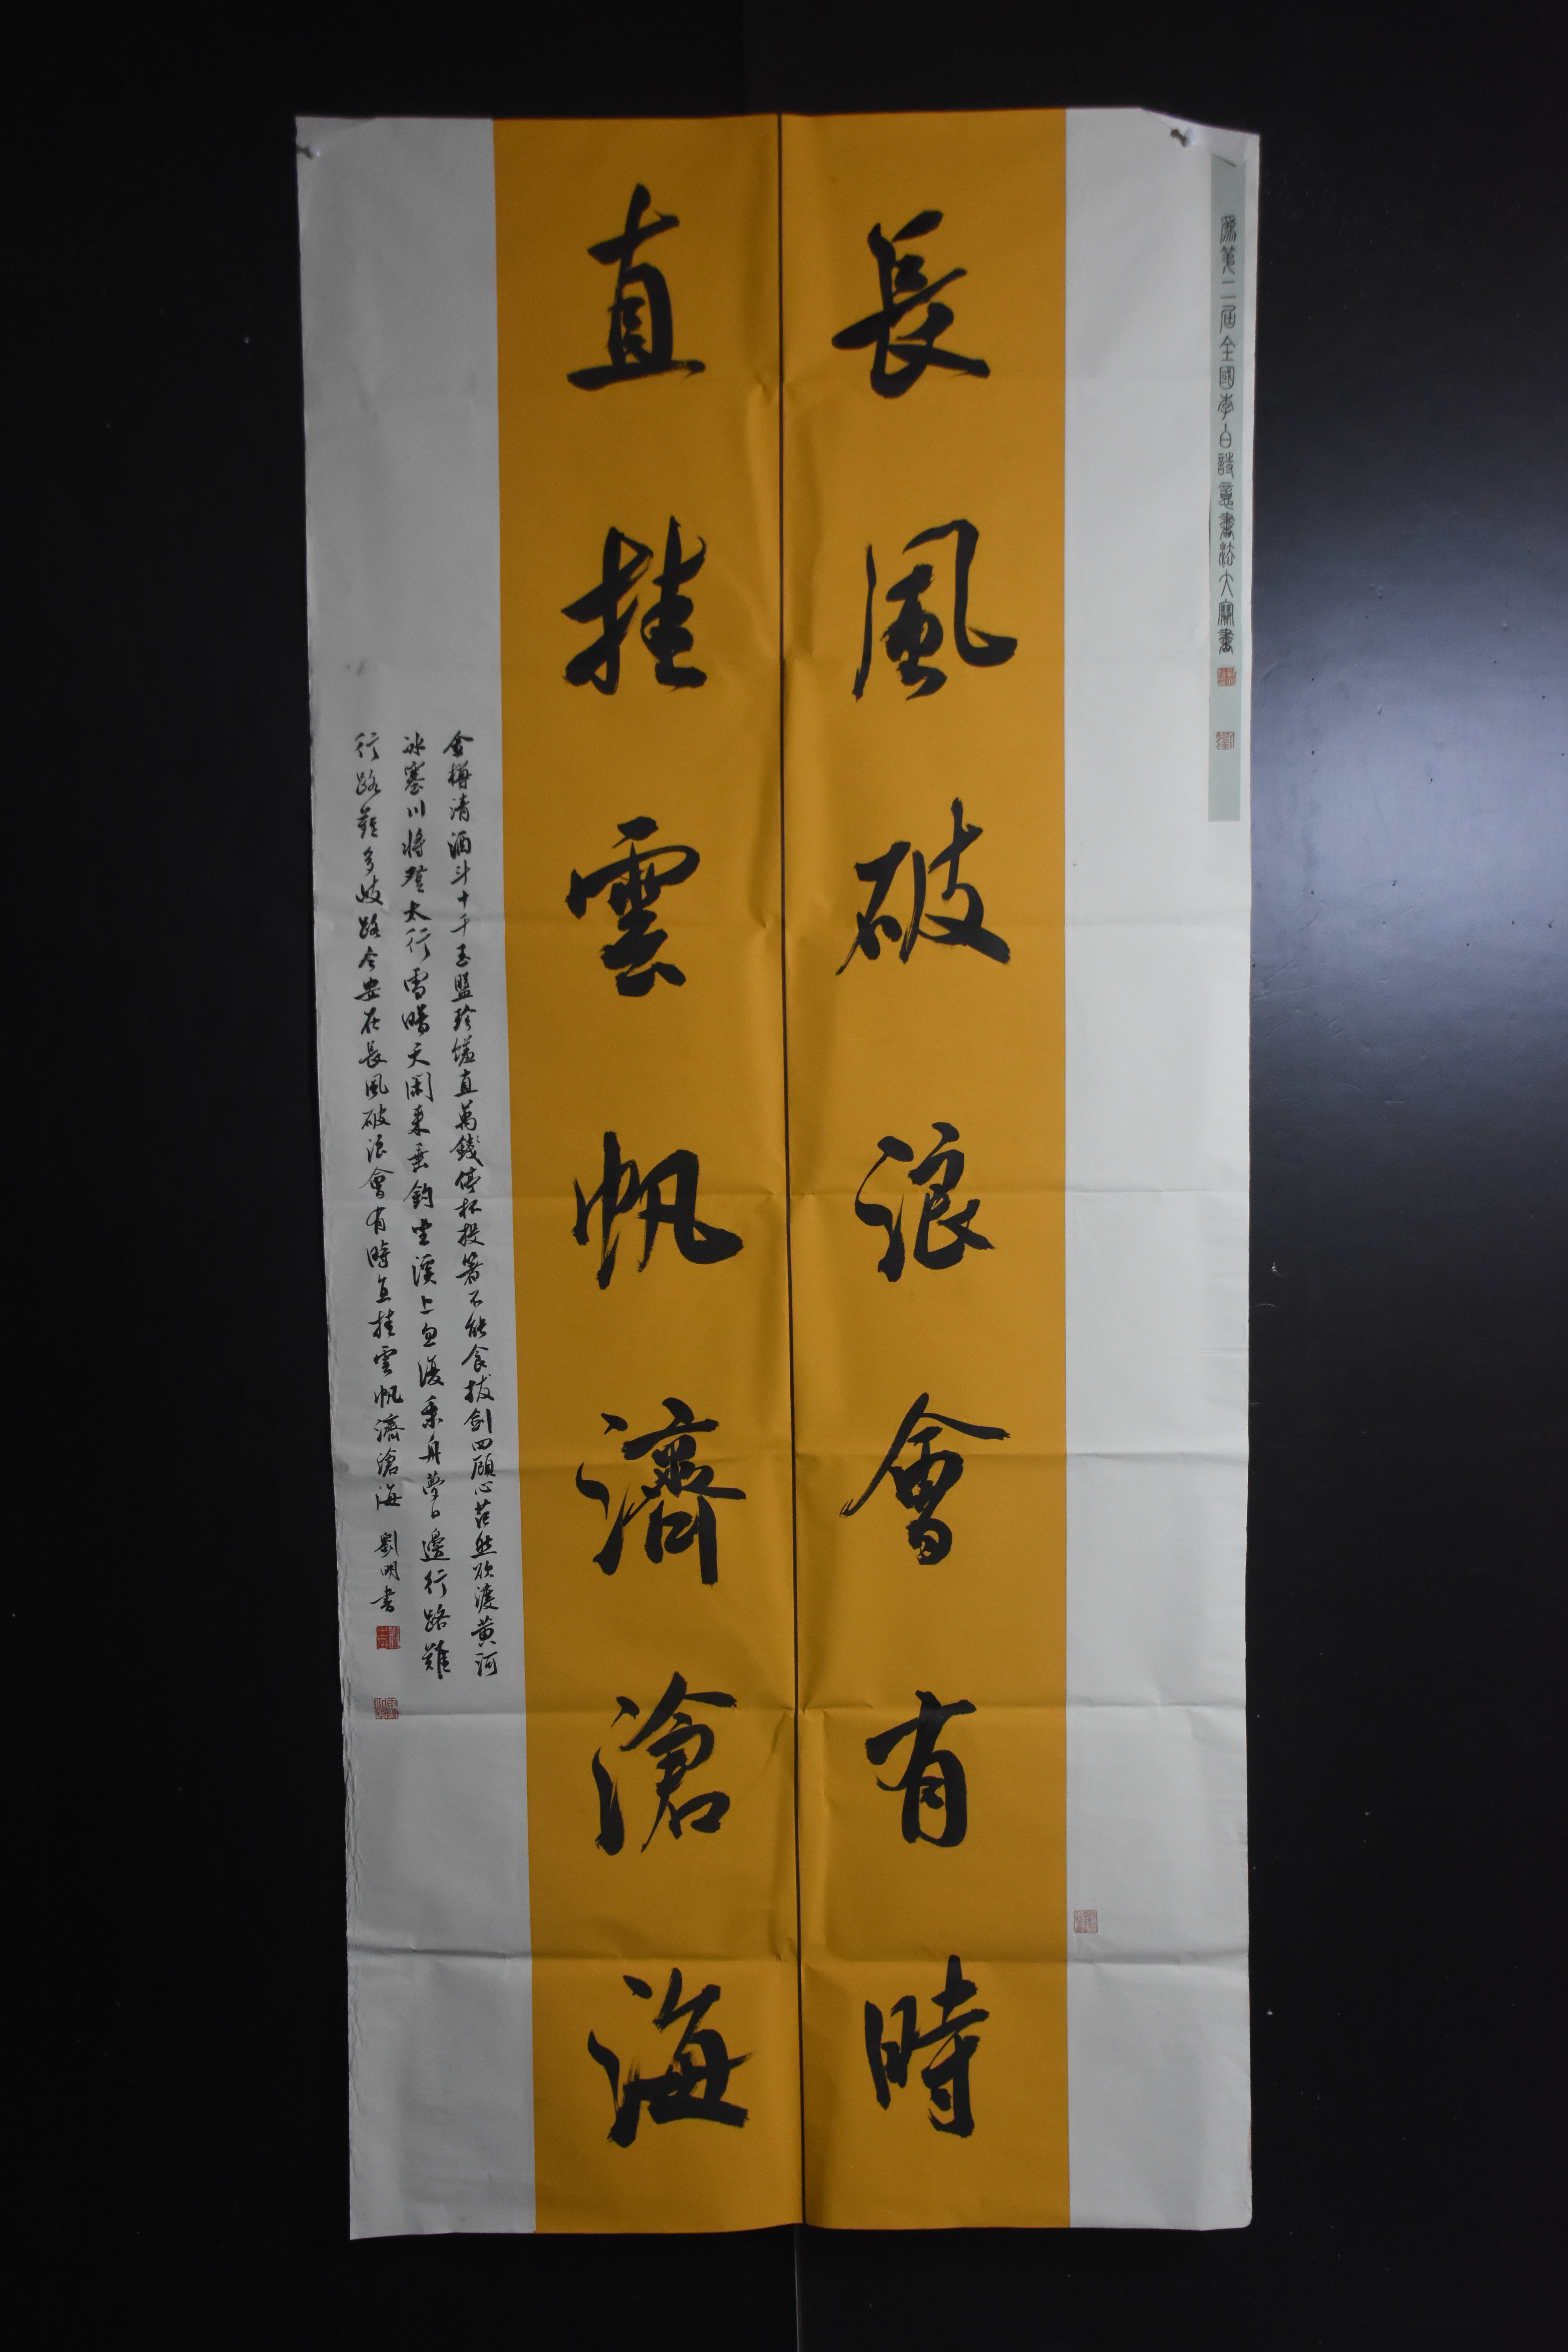 為第二屆全國李白詩意書法大賽書
長風破浪會有時
直挂雲帆濟滄海
金樽清酒斗十千玉盤珍饈直萬錢停杯投箸不能食拔劍四顧心茫然欲渡黃河
冰塞川將登太行雪暗天閑來垂釣坐溪上忽復乘舟夢日邊行路難
行路難多歧路今安在長風破浪會有時直挂雲帆濟滄海 劉明書